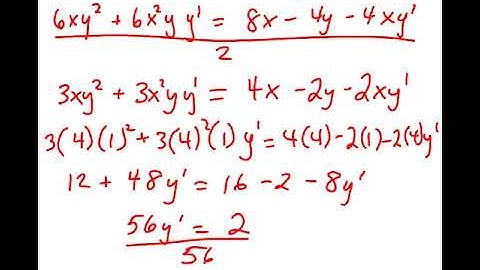 6xy² + 6x²y y' = 8x - 4y - 4xy'
2
3xy² + 3x²yy' = 4x - 2y - 2xy'
3(4)(1)² + 3(4)²(1) y' = 4(4) - 2(1) - 2(4)y'
12 + 48y' = 16 - 2 - 8y'
56y' = 2
56